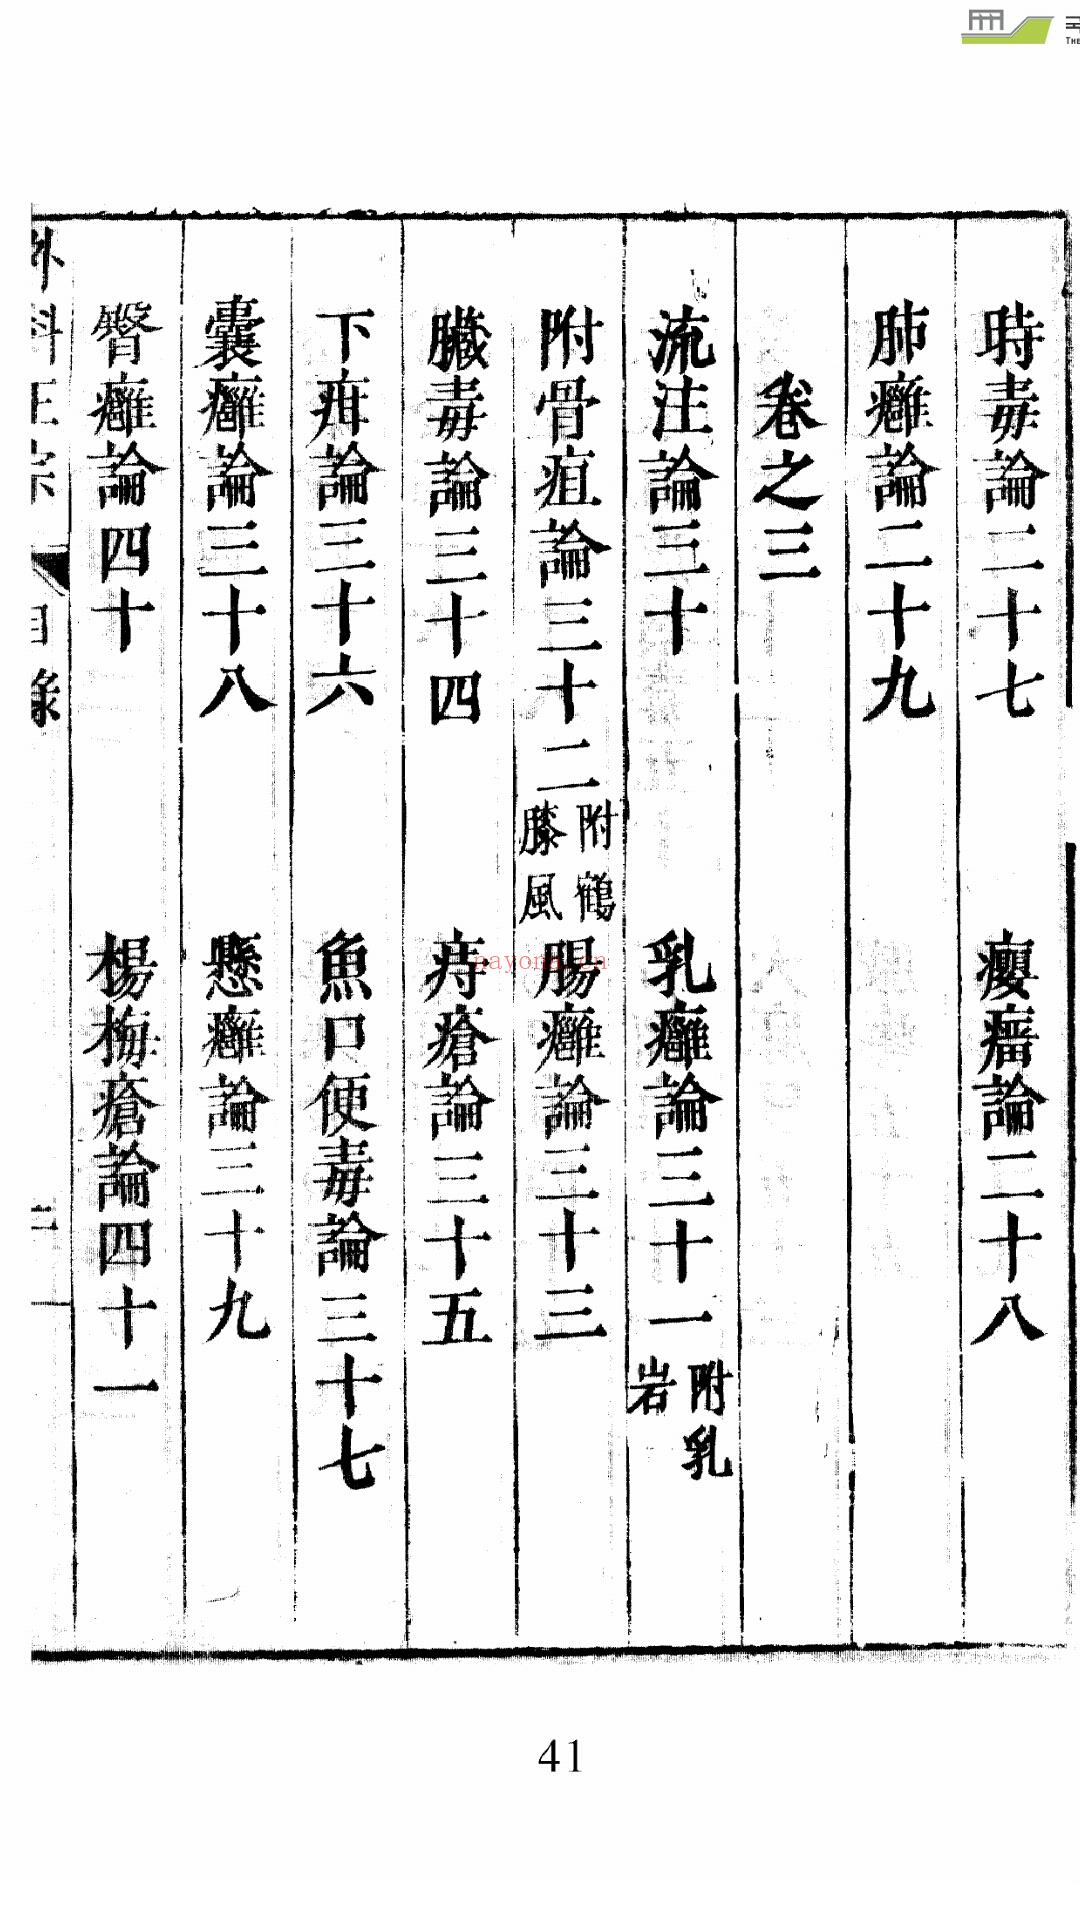 時毒論二十七 癭瘤論二十八
肺癰論二十九
卷之三
流注論三十 乳癰論三十一 附乳岩
附骨疽論三十二 附鶴膝風 腸癰論三十三
臟毒論三十四 痔瘡論三十五
下疳論三十六 魚口便毒論三十七
囊癰論三十八 懸癰論三十九
臀癰論四十 楊梅瘡論四十一
外科正宗 目錄
41
nayona.cn
THE